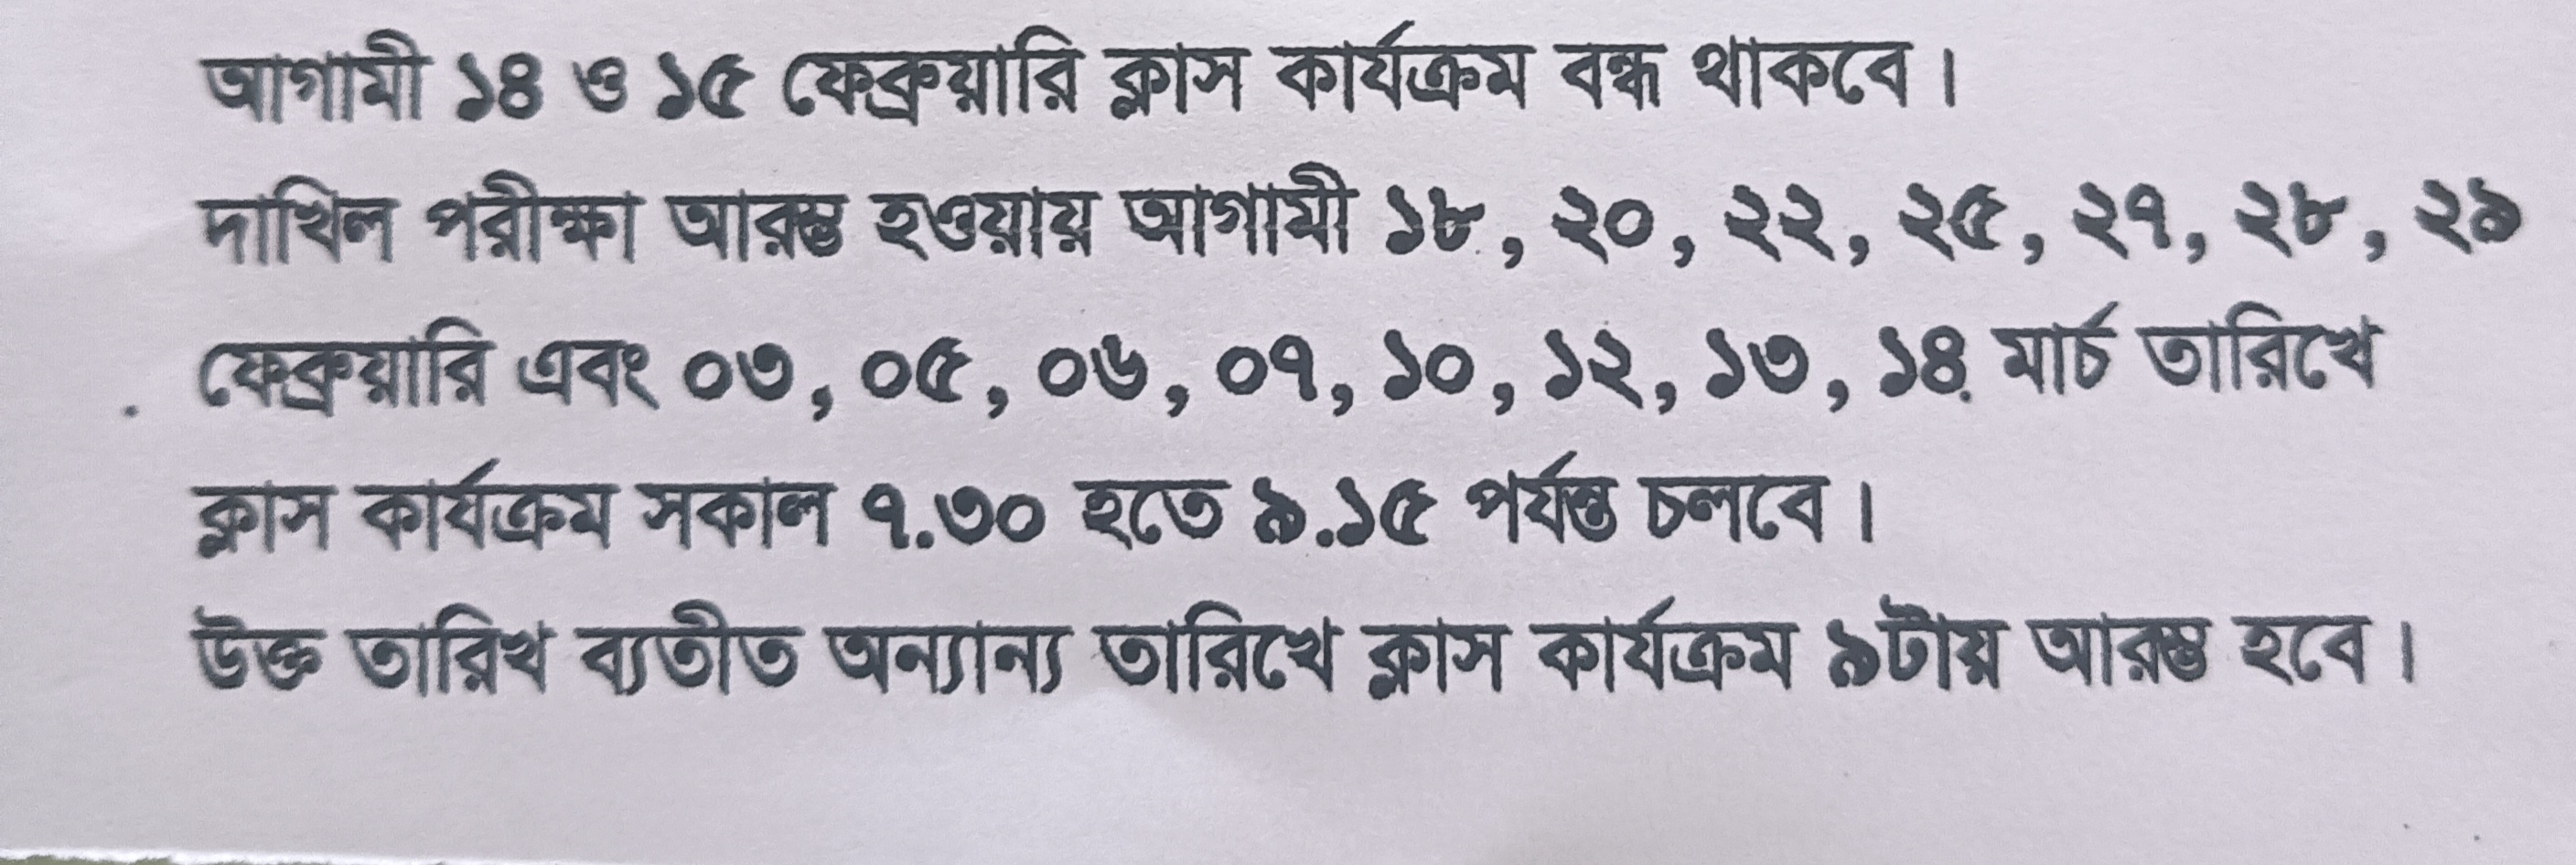 আগামী ১৪ ও ১৫ ফেব্রুয়ারি ক্লাস কার্যক্রম বন্ধ থাকবে।
দাখিল পরীক্ষা আরম্ভ হওয়ায় আগামী ১৮, ২০, ২২, ২৫, ২৭, ২৮, ২৯
ফেব্রুয়ারি এবং ০৩, ০৫, ০৬, ০৭, ১০, ১২, ১৩, ১৪ মার্চ তারিখে
ক্লাস কার্যক্রম সকাল ৭.৩০ হতে ৯.১৫ পর্যন্ত চলবে।
উক্ত তারিখ ব্যতীত অন্যান্য তারিখে ক্লাস কার্যক্রম ৯টায় আরম্ভ হবে।